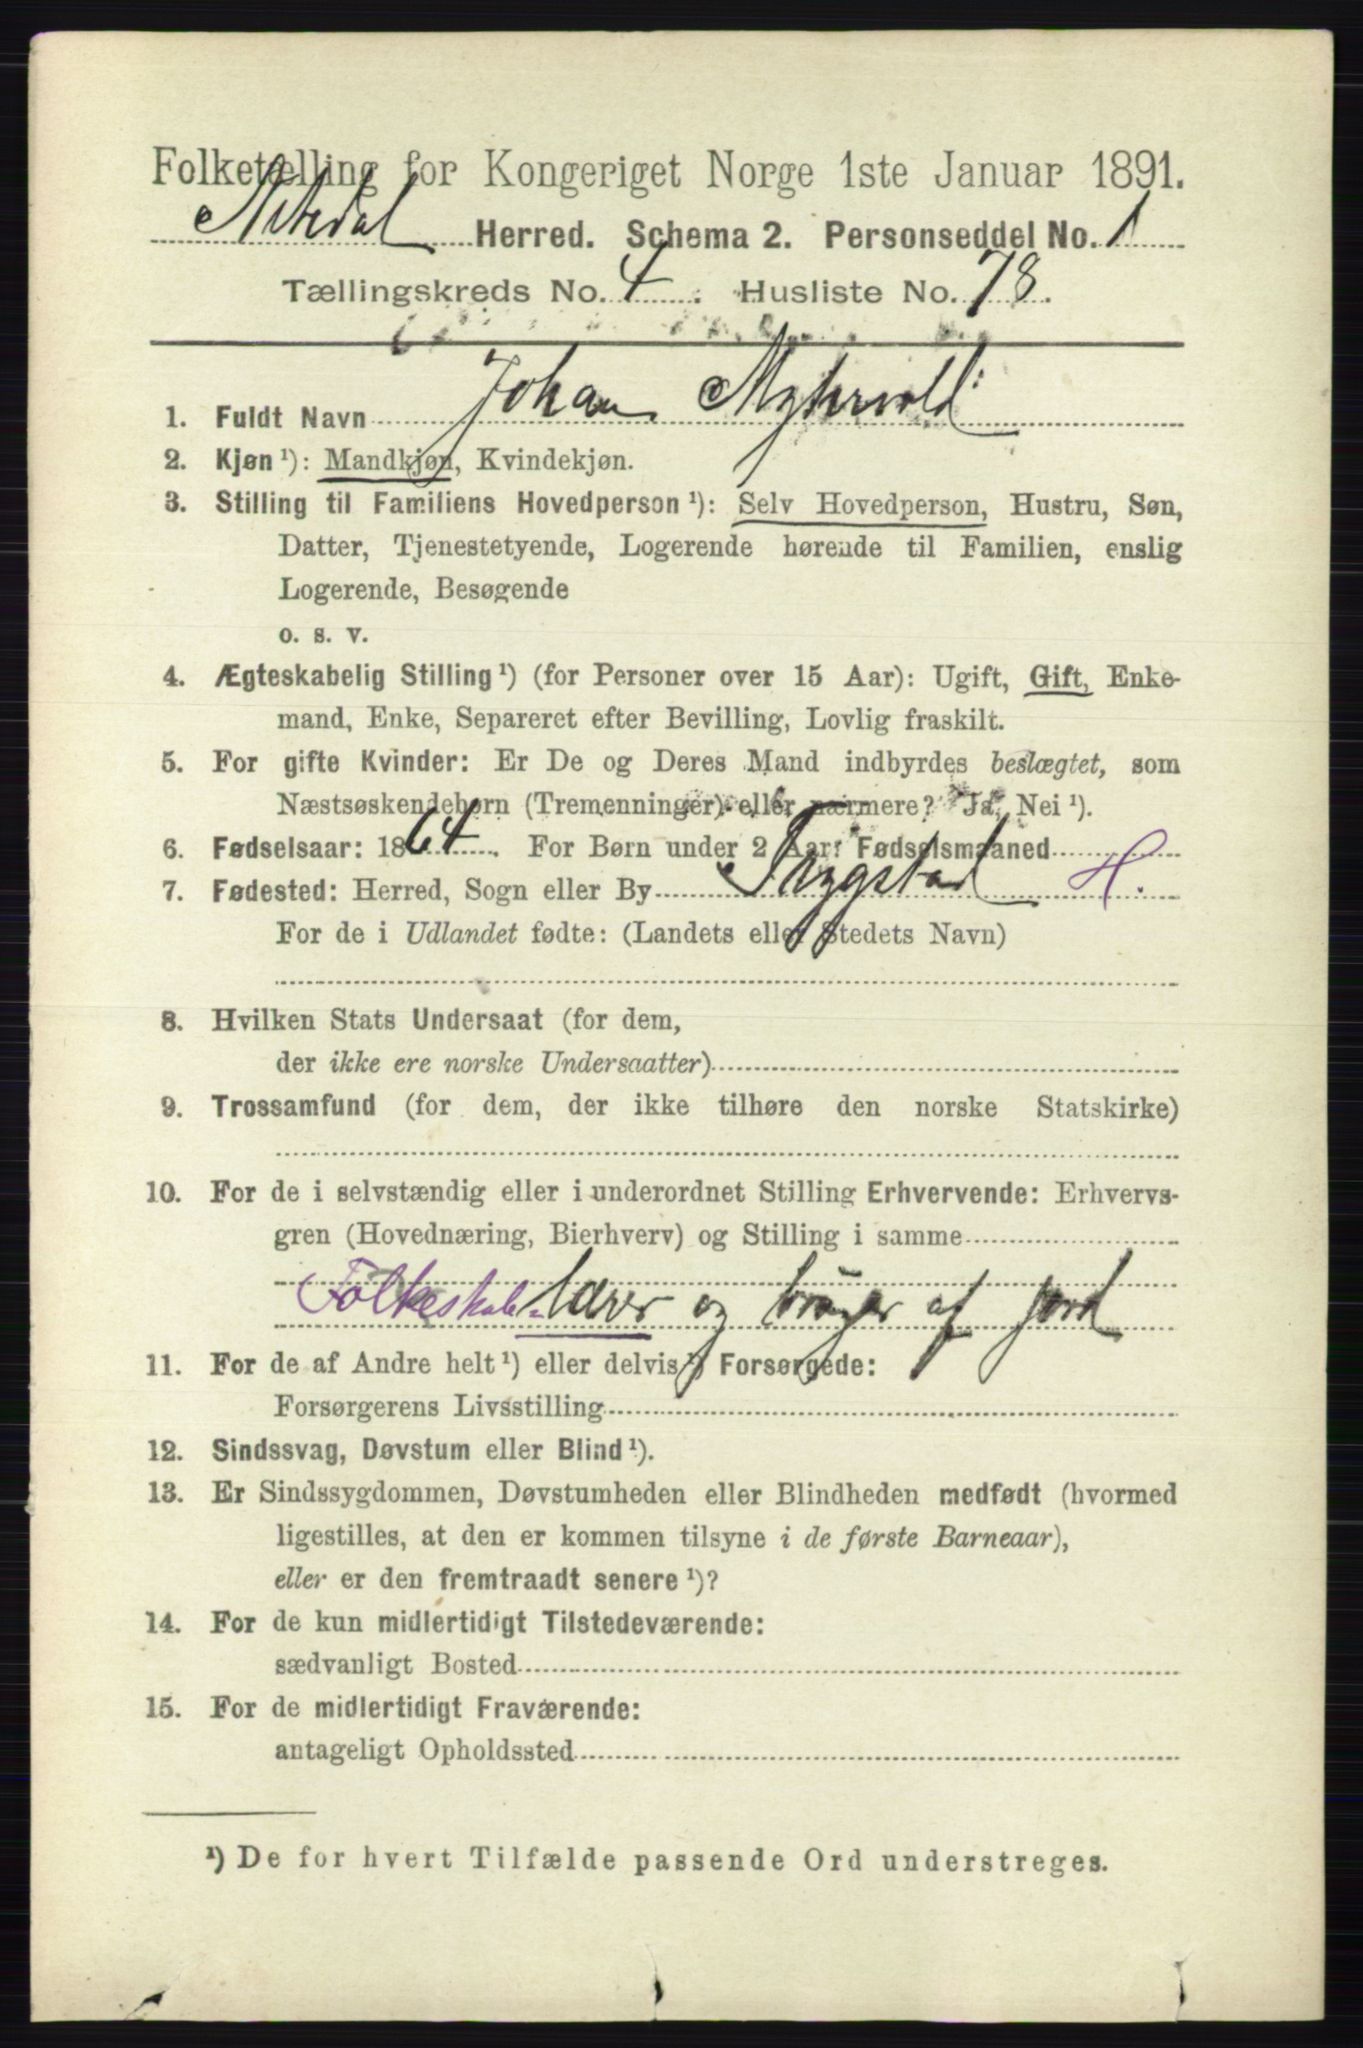 Folketælling for Kongeriget Norge 1ste Januar 1891.
Nitedal Herred. Schema 2. Personseddel No. 1
Tællingskreds No. 4. Husliste No. 78.
1. Fuldt Navn Johan Myhrvold
2. Kjøn ¹): Mandkjøn, Kvindekjøn.
3. Stilling til Familiens Hovedperson ¹): Selv Hovedperson, Hustru, Søn,
Datter, Tjenestetyende, Logerende hørende til Familien, enslig
Logerende, Besøgende
o. s. v.
4. Ægteskabelig Stilling ¹) (for Personer over 15 Aar): Ugift, Gift, Enke-
mand, Enke, Separeret efter Bevilling, Lovlig fraskilt.
5. For gifte Kvinder: Er De og Deres Mand indbyrdes beslægtet, som
Næstsøskendebørn (Tremenninger) eller nærmere? Ja, Nei ¹).
6. Fødselsaar: 1864. For Børn under 2 Aar: Fødselsmaaned
7. Fødested: Herred, Sogn eller By Trygstad H.
For de i Udlandet fødte: (Landets eller Stedets Navn)
8. Hvilken Stats Undersaat (for dem,
der ikke ere norske Undersaatter)
9. Trossamfund (for dem, der ikke tilhøre den norske Statskirke)
10. For de i selvstændig eller i underordnet Stilling Erhvervende: Erhvervs-
gren (Hovednæring, Bierhverv) og Stilling i samme
Folkeskole= lærer og bruger af jord
11. For de af Andre helt ¹) eller delvis ¹) Forsørgede:
Forsørgerens Livsstilling
12. Sindssvag, Døvstum eller Blind ¹).
13. Er Sindssygdommen, Døvstumheden eller Blindheden medfødt (hvormed
ligestilles, at den er kommen tilsyne i de første Barneaar),
eller er den fremtraadt senere ¹)?
14. For de kun midlertidigt Tilstedeværende:
sædvanligt Bosted
15. For de midlertidigt Fraværende:
antageligt Opholdssted
¹) De for hvert Tilfælde passende Ord understreges.